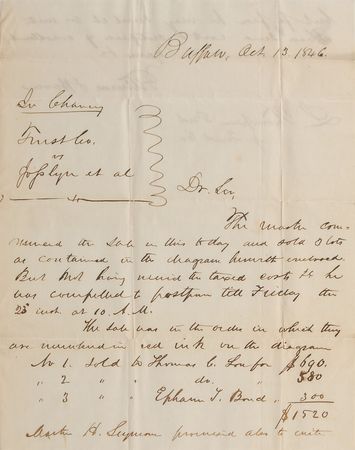 Buffalo, Oct 13. 1846.
In Chancery
Trust Co.
vs
Joslyn et al
Dr Sir,
The master com-
menced the sale in this to day and sold 3 lots
as contained in the diagram herewith enclosed.
But not being the taxed costs &c he
was compelled to postpone till Friday the
23d inst. at 10. A. M.
The sale was in the order in which they
are numbered in red ink on the diagram
No 1. Sold to Thomas C. for $690.
" 2 " " do. " 530
" 3 " " Epharm T. Bond " 300
$1520
Master H. Seymour promised also to write